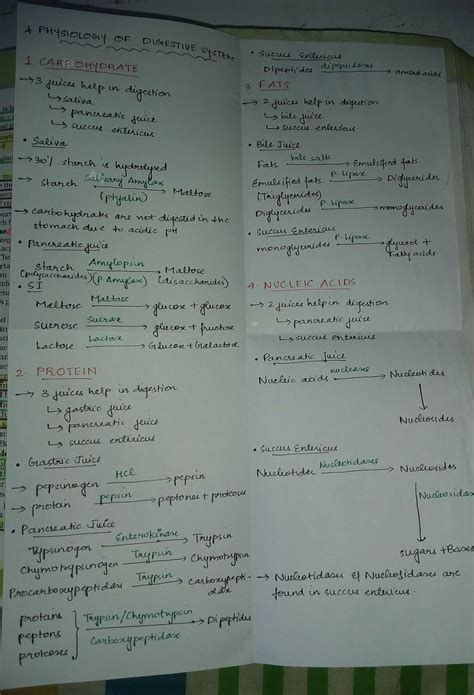 * PHYSIOLOGY OF DIGESTIVE SYSTEM
1. CARBOHYDRATE
→ 3 juices help in digestion
↳ saliva
↳ pancreatic juice
↳ succus entericus
• Saliva
→ 30% starch is hydrolysed
→ Starch Salivary Amylase → Maltose
(ptyalin)
→ carbohydrates are not digested in the
stomach due to acidic pH
• Pancreatic juice
Starch Amylopsin → Maltose
(polysaccharides) (P. Amylase) (disaccharides)
• S.I
Maltose Maltase → glucose + glucose
Sucrose Sucrase → glucose + fructose
Lactose Lactase → Glucose + Galactose
2. PROTEIN
→ 3 juices help in digestion
↳ gastric juice
↳ pancreatic juice
↳ succus entericus
• Gastric Juice
→ pepsinogen HCl → pepsin
→ protein pepsin → peptones + proteoses
• Pancreatic Juice
Trypsinogen Enterokinase → Trypsin
Chymotrypsinogen Trypsin → Chymotrypsin
Procarboxypeptidase Trypsin → Carboxypepti-
dase
proteins
peptons
proteoses
Trypsin/Chymotrypsin → Dipeptides
Carboxypeptidase
• Succus Entericus
Dipeptides dipeptidases → amino acids
3. FATS
→ 2 juices help in digestion
↳ bile juice
↳ succus entericus
• Bile Juice
Fats bile salts → Emulsified fats
Emulsified fats P. Lipase → Diglycerides
(Triglycerides)
Diglycerides P. Lipase → monoglycerides
• Succus Entericus
monoglycerides P. Lipase → glycerol +
Fatty acids
4. NUCLEIC ACIDS
→ 2 juices help in digestion
↳ pancreatic juice
↳ succus entericus
• Pancreatic juice
Nucleic acids nucleases → Nucleotides
↓
Nucleosides
• Succus Entericus
Nucleotides Nucleotidases → Nucleosides
↓ Nucleosidas
sugars + Bases
→ Nucleotidases & Nucleosidases are
found in succus entericus.